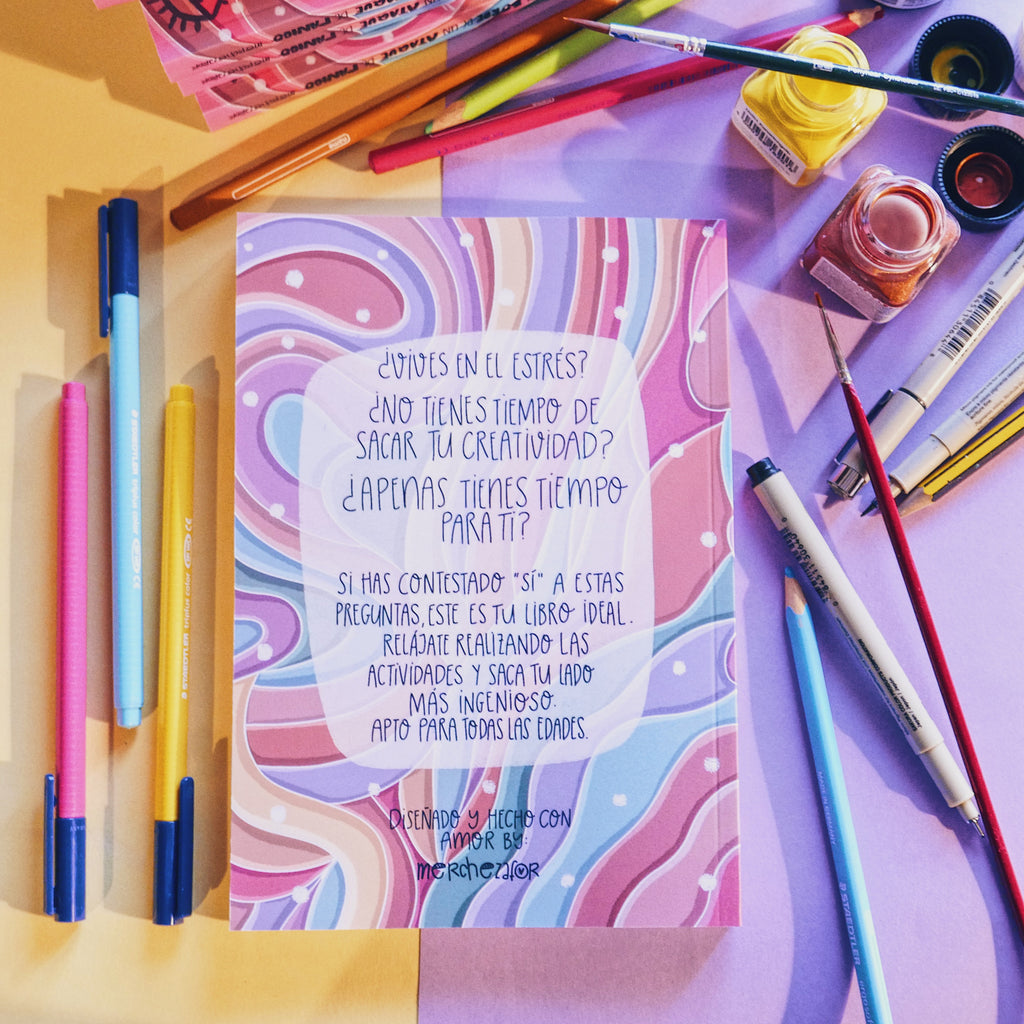 ATAQUE DE PÁNICO
¿VIVES EN EL ESTRÉS?
¿NO TIENES TIEMPO DE
SACAR TU CREATIVIDAD?
¿APENAS TIENES TIEMPO
PARA TI?
SI HAS CONTESTADO "SÍ" A ESTAS
PREGUNTAS, ESTE ES TU LIBRO IDEAL.
RELÁJATE REALIZANDO LAS
ACTIVIDADES Y SACA TU LADO
MÁS INGENIOSO.
APTO PARA TODAS LAS EDADES.
DISEÑADO Y HECHO CON
AMOR BY:
merchezafor
STAEDTLER triplus color
STAEDTLER triplus color
STAEDTLER